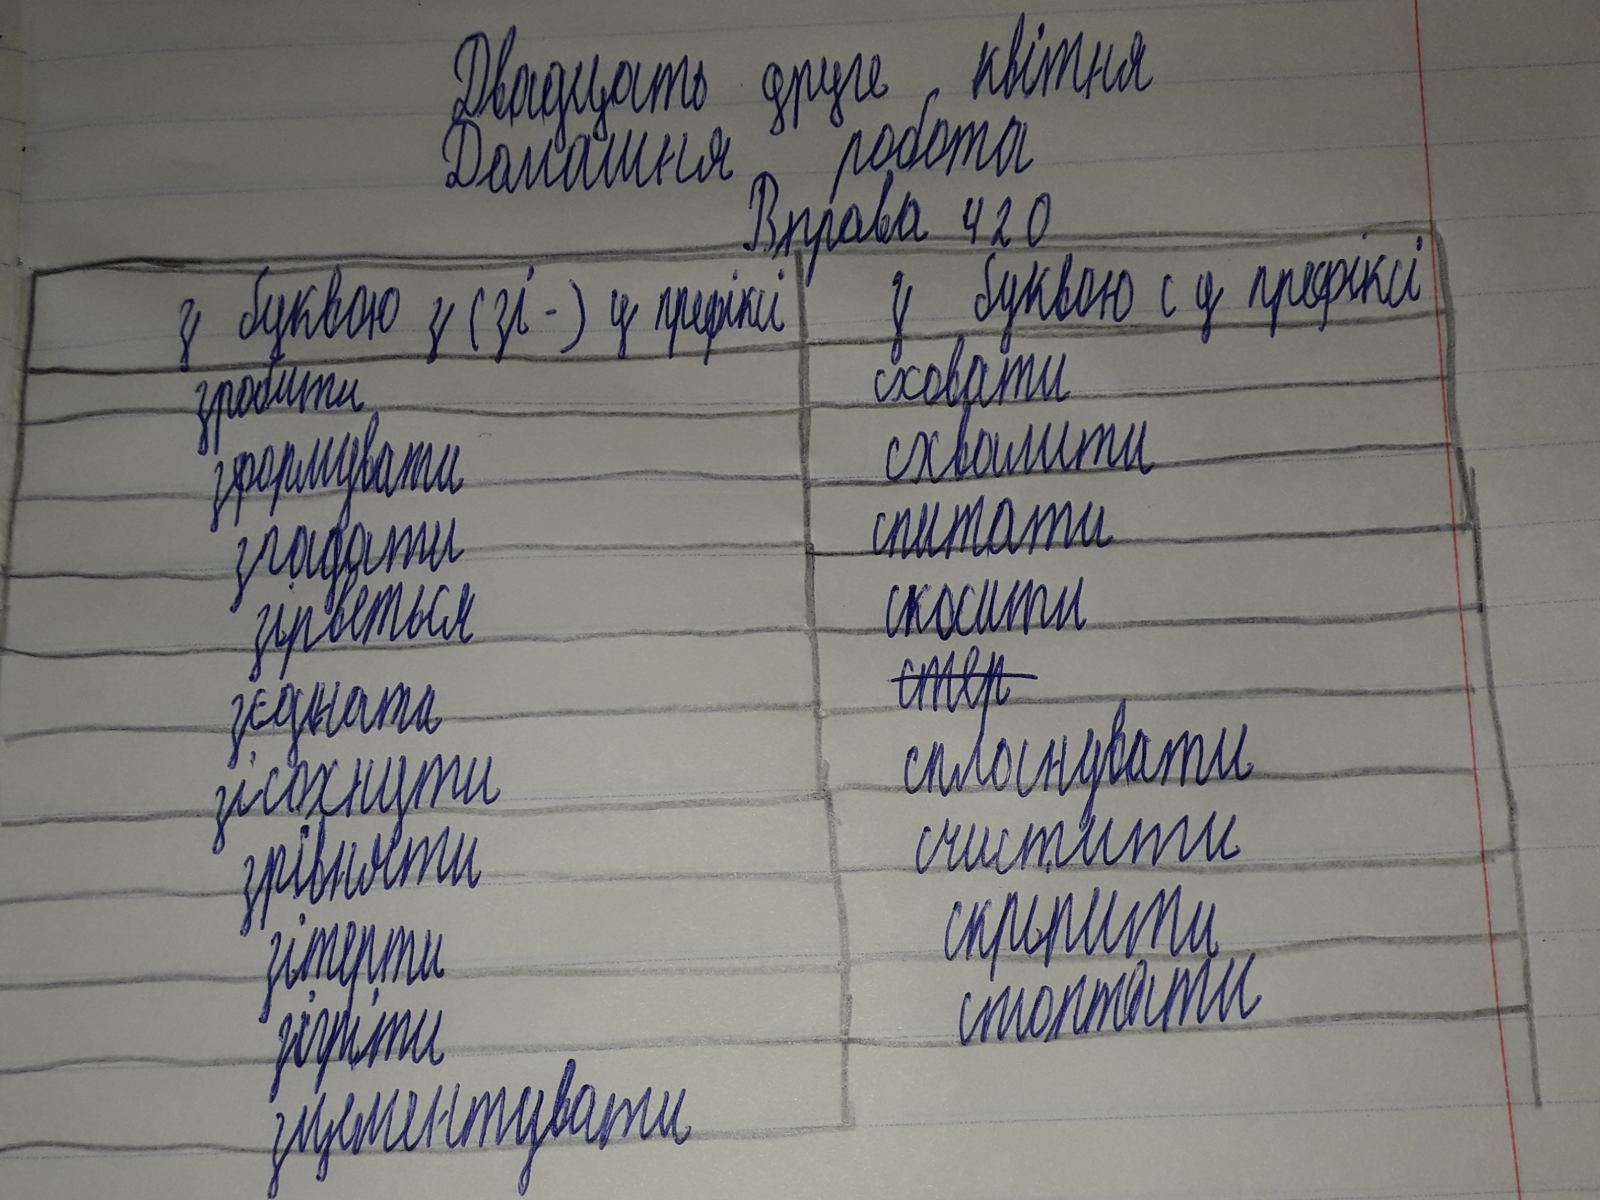 Двадцать друге квітня
Домашня робота
Вправа 420
з буквою з (зі-) у префіксі з буквою с у префіксі
зробити сховати
зформувати схвалити
згадати спитати
зірветься скосити
зєднати стер
зісохнути сплоснувати
зрівняти счистити
зітерти скріпити
зігріти стоптати
зцементувати